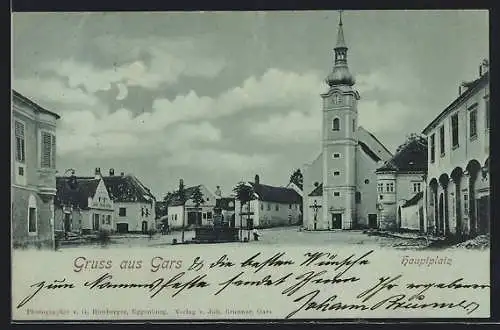 Gruss aus Gars Die besten Wünsche
Hauptplatz
zum Namensfeste sendet Ihnen Ihr ergebener
Johann Brunner
Photographie v. G. Hiesberger, Eggenburg. Verlag v. Joh. Brunner, Gars